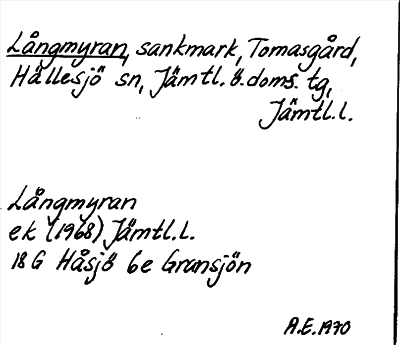 Långmyran, sankmark, Tomasgård,
Hällesjö sn, Jämtl. ö. doms. tg,
Jämtl.l.
Långmyran
ek (1968) Jämtl.l.
18 G Håsjö 6e Gransjön
A.E. 1970